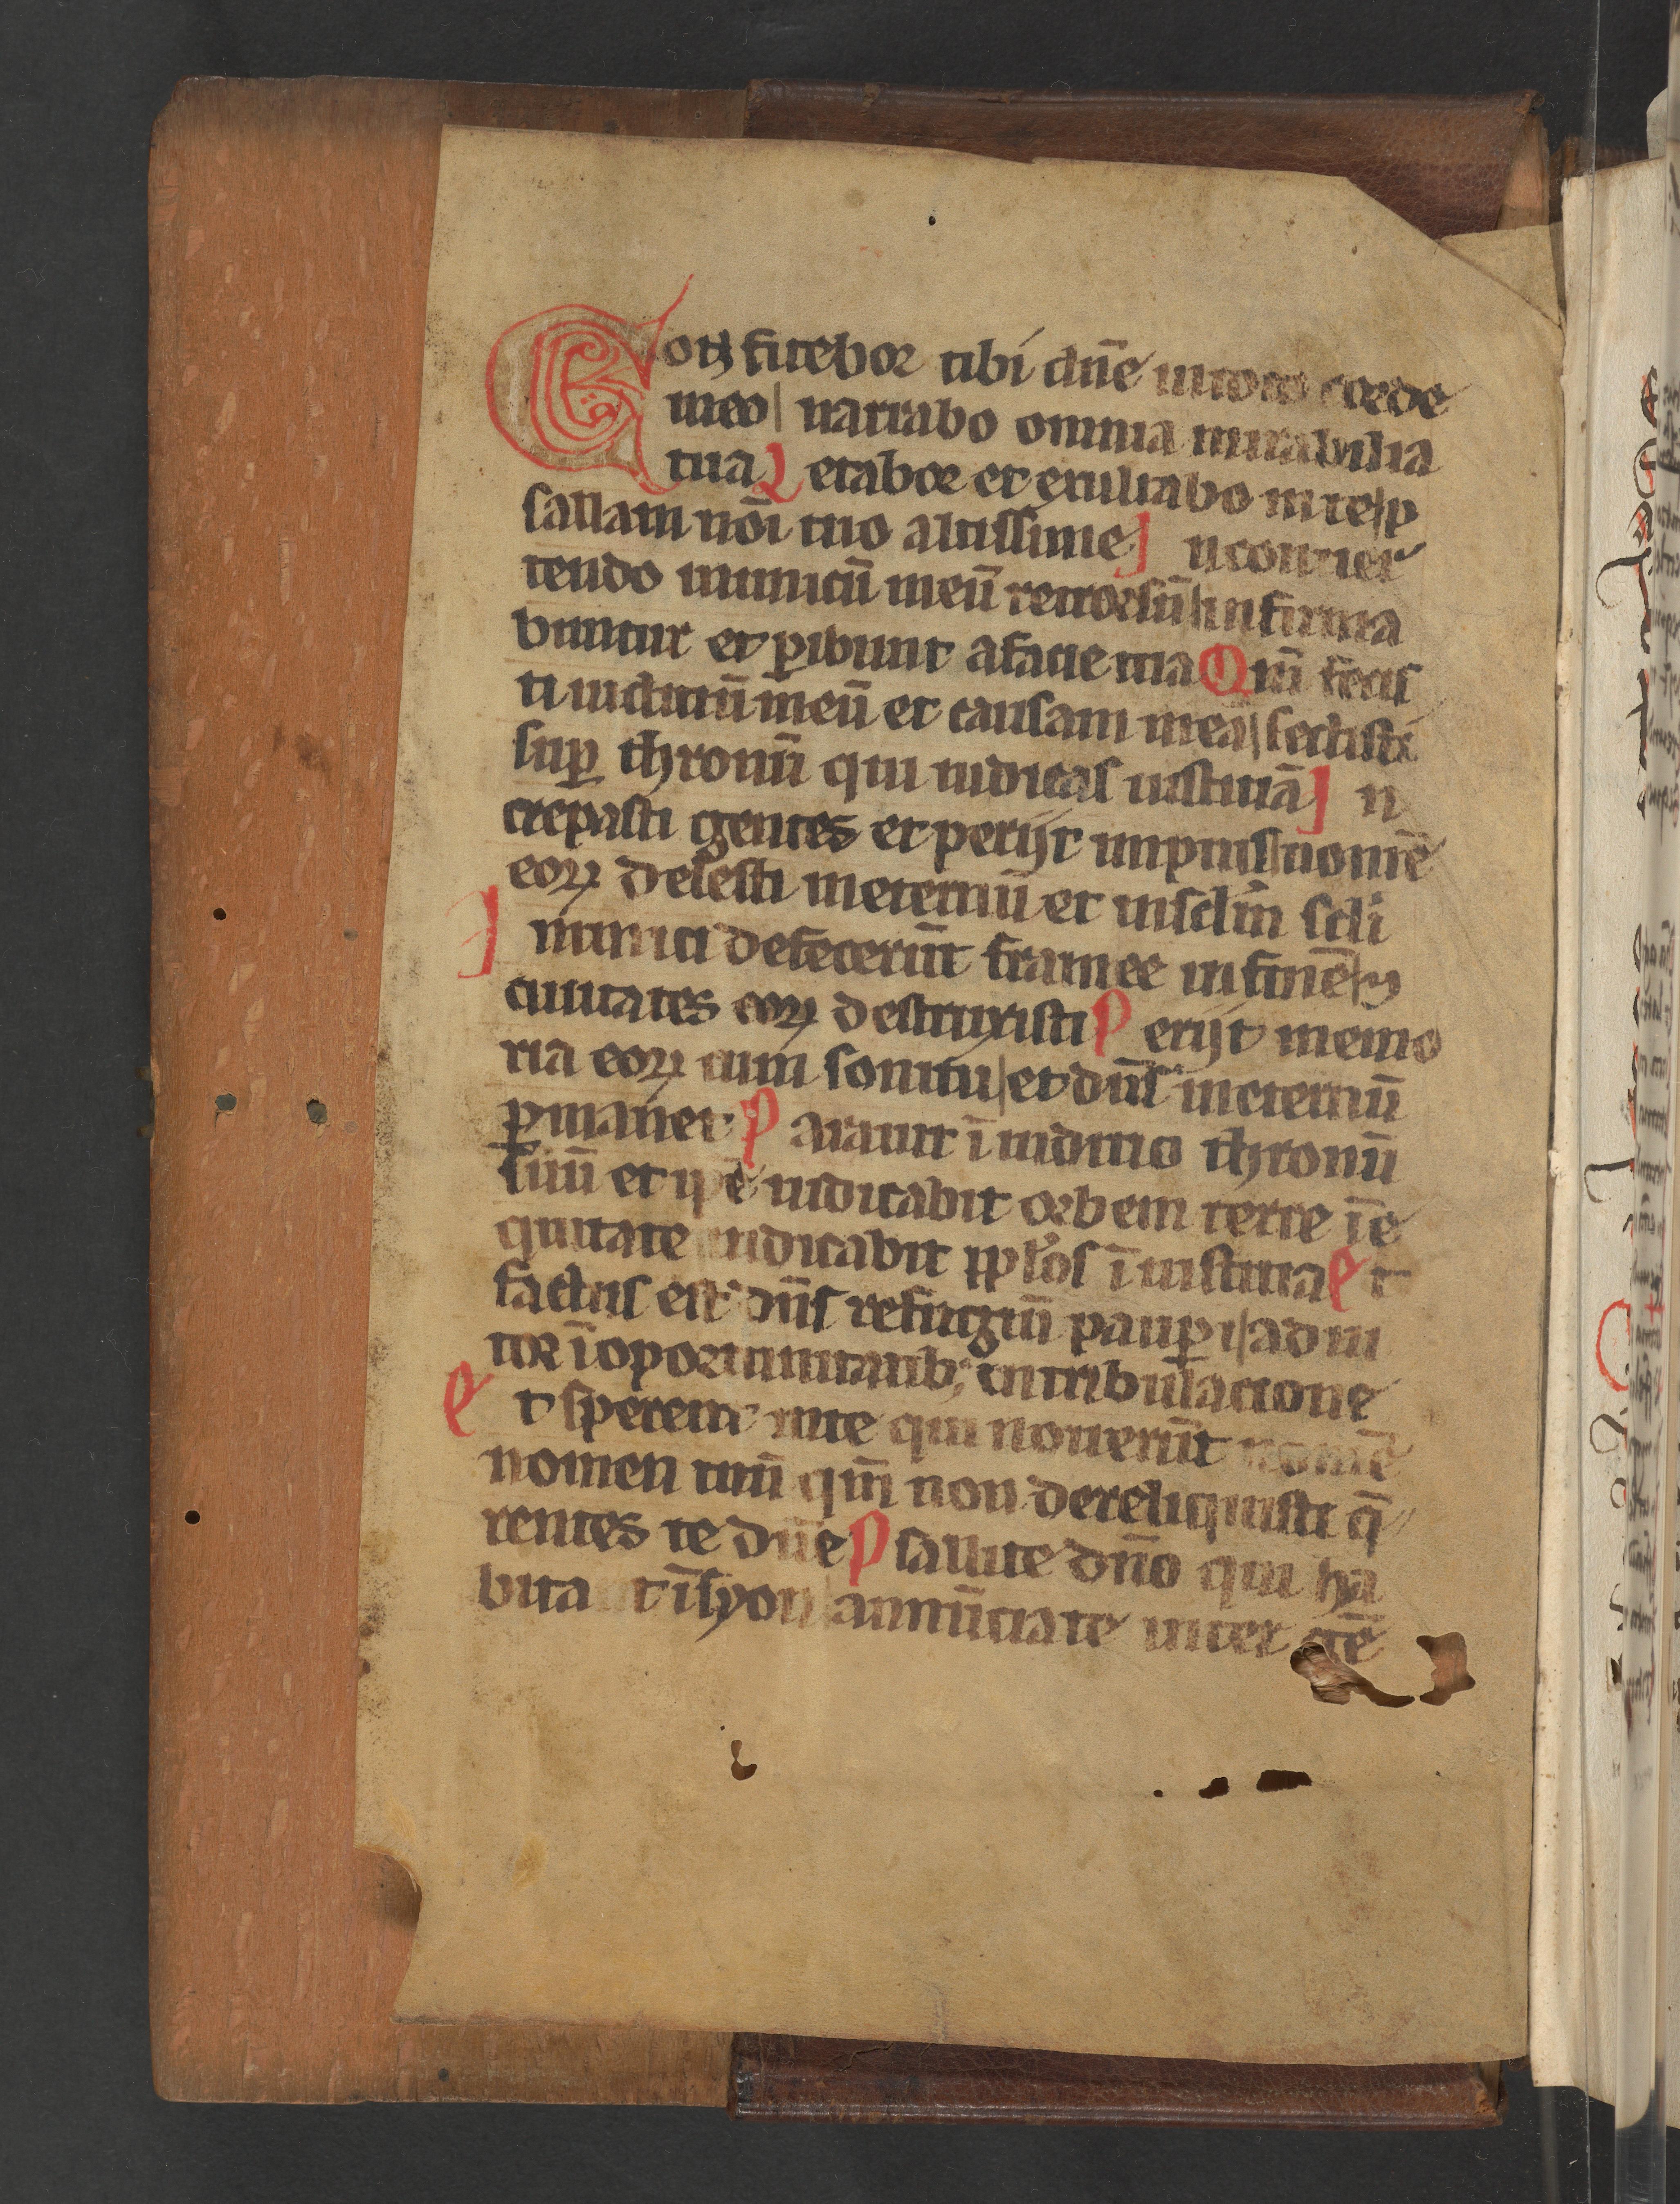 Confitebor tibi dn̄e in toto corde
meo | narrabo omnia mirabilia
tua Letabor et exultabo in te | p
sallam nōi tuo altissime In conuer
tendo inimicū meū retrorsū | infirma
buntur et ꝑibunt a facie tua Qm̄ fecis
ti iudiciū meū et causam meā | sedisti
suꝑ thronū qui iudicas iusticiā In
crepasti gentes et perijt impius | nomē
eoꝝ delesti in eternū et in sclm̄ scli
Inimici defecerūt framee in finē | et
ciuitates eoꝝ destruxisti Perijt memo
ria eoꝝ cum sonitu | et dn̄s in eternū
ꝑmanet Parauit ī iudicio thronū
suū et ip̄e iudicabit orbem terre ī e
quitate iudicabit pplos ī iusticia Et
factus est dn̄s refugiū pauꝑi | adiu
tor ī oportunitatib; in tribulacione
Et sperent in te qui nouerūt nomē
nomen tuū qm̄ non dereliquisti q̄
rentes te dn̄e Psallite dn̄o qui ha
bitat ī syon annūciate inter gē